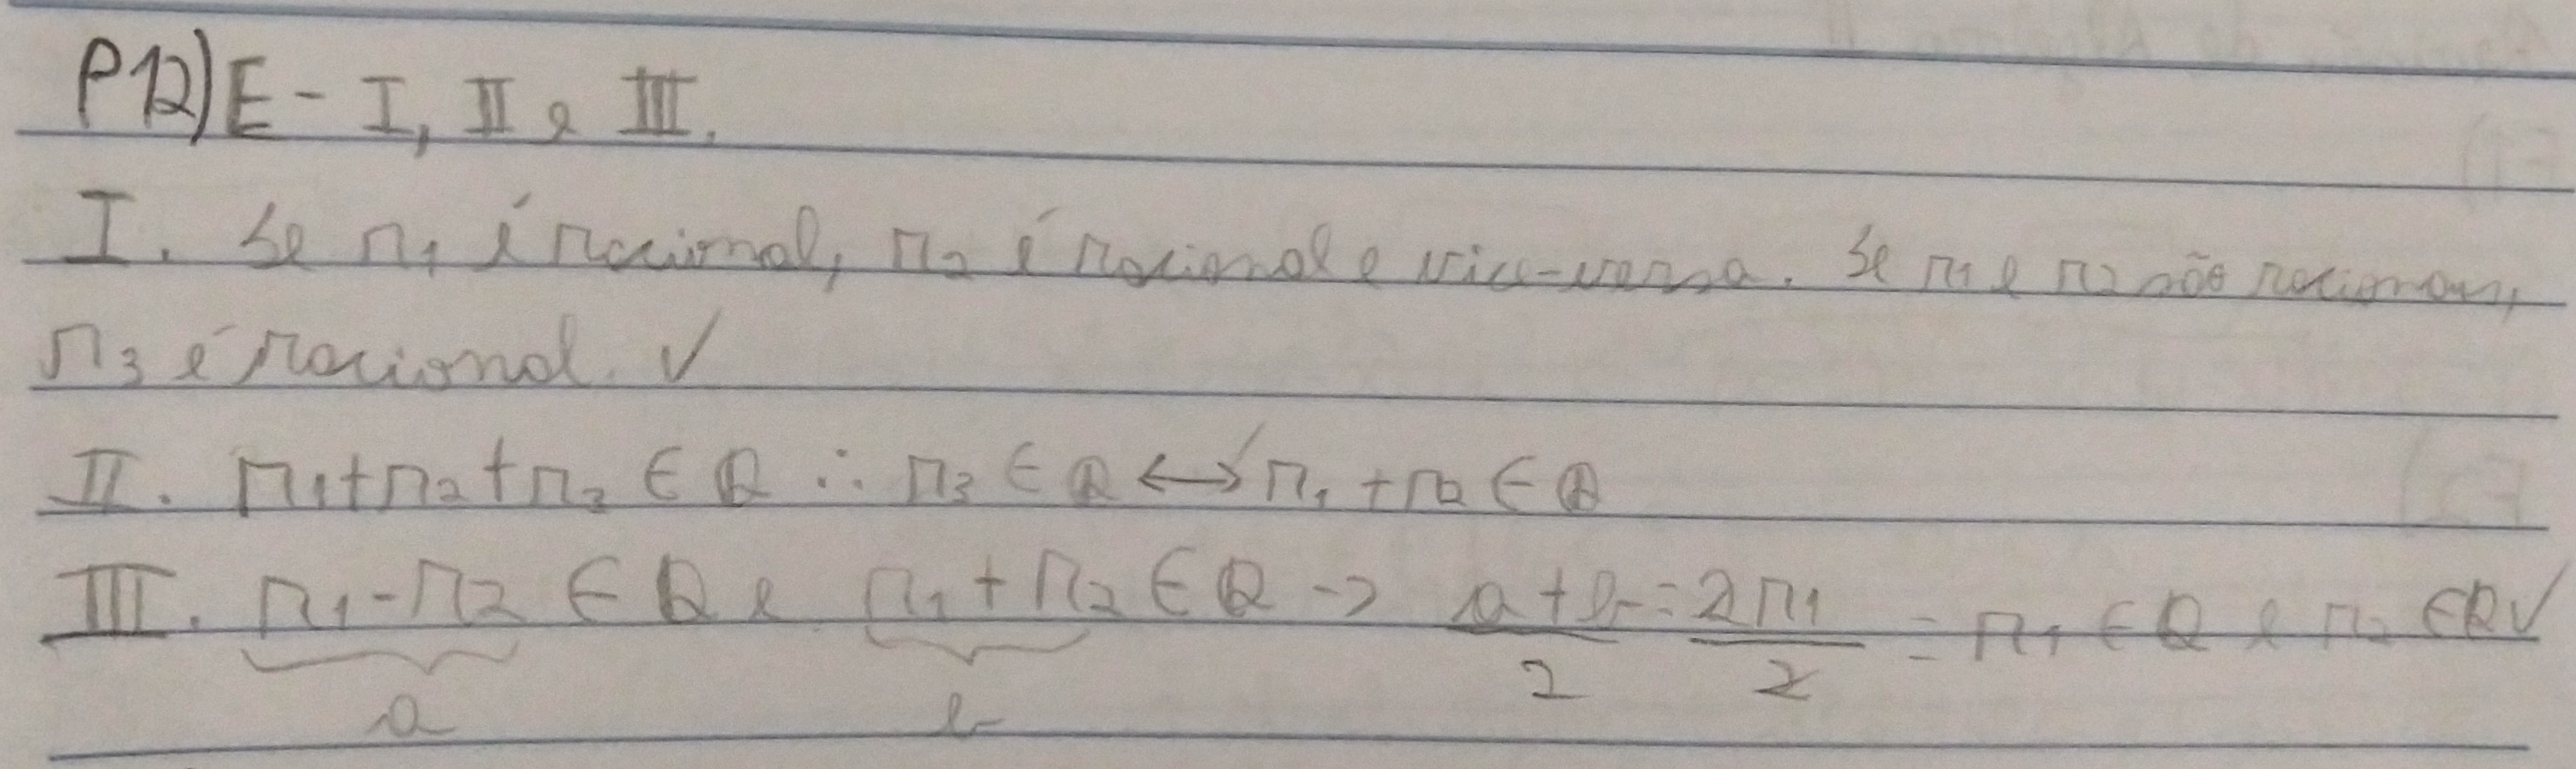 P12) E - I, II e III.
I. Se r₁ é racional, r₂ é racional e vice-versa. Se r₁ e r₂ não racionais,
r₃ é racional. ✓
II. r₁+r₂+r₃ ∈ Q ∴ r₃ ∈ Q ↔ r₁+r₂ ∈ Q ✓
III. r₁-r₂ ∈ Q e r₁+r₂ ∈ Q → a+b/2 = 2r₁/2 = r₁ ∈ Q e r₂ ∈ Q ✓
a b